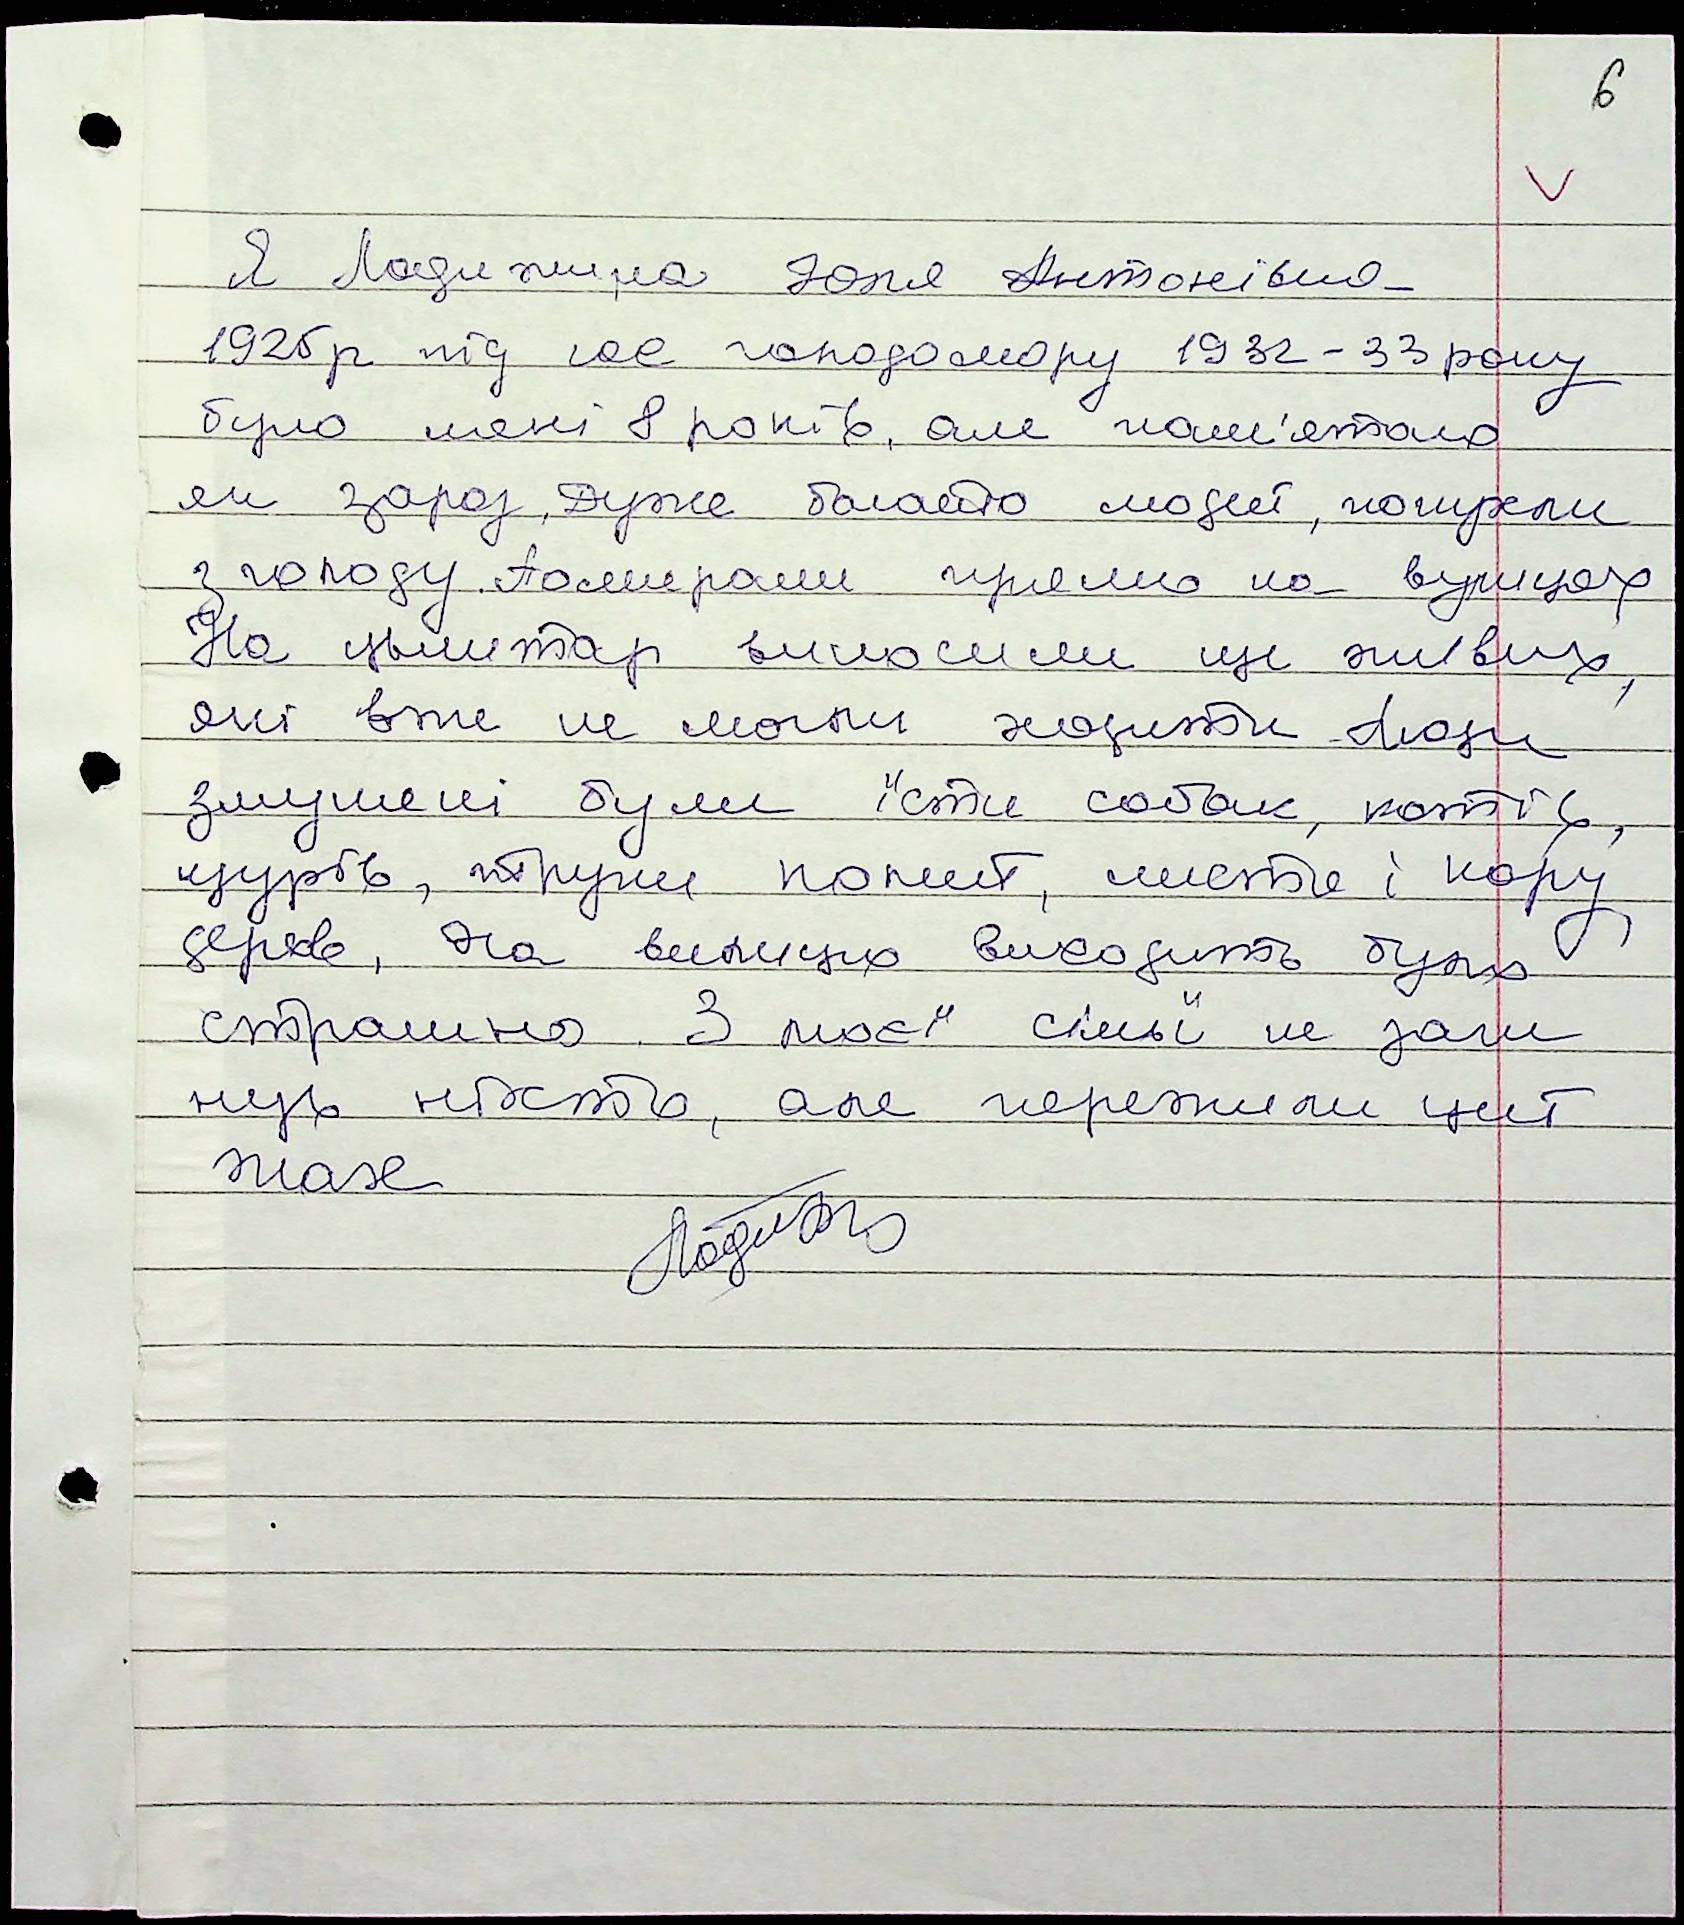 6
Я Ладижина Зоня Антонівна
1925р під час голодомору 1932-33 року
було мені 8 років, але пам'ятаю
як зараз, Дуже багато людей, попухли
з голоду. Помирали прямо на вулицях
На цвинтар виносили ще живих,
які вже не могли ходити Люди
змушені були їсти собак, котів,
щурів, трупи коней, листя і кору
дерев, На вулицю виходить було
страшно. З моєї сімьї не заги
нув ніхто, але пережили цей
жах